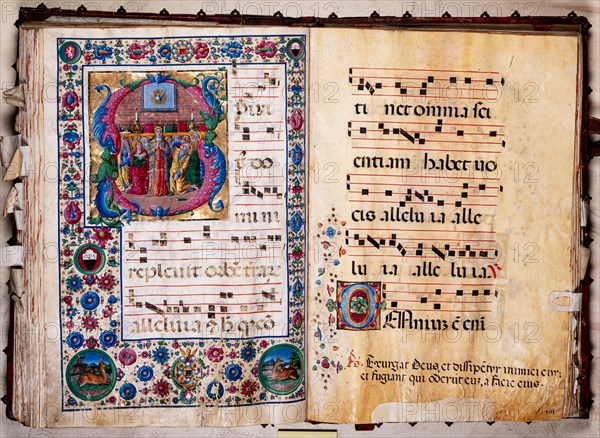 piri
do
mini
repleuit orbe terrar
alleluia & hoc q co
ti net omnia sci
entiam habet uo
cis alleluia alle
luia alle luia
Ps. Exurgat Deus, et dissipentur inimici eius:
et fugiant qui oderunt eum, a facie eius.